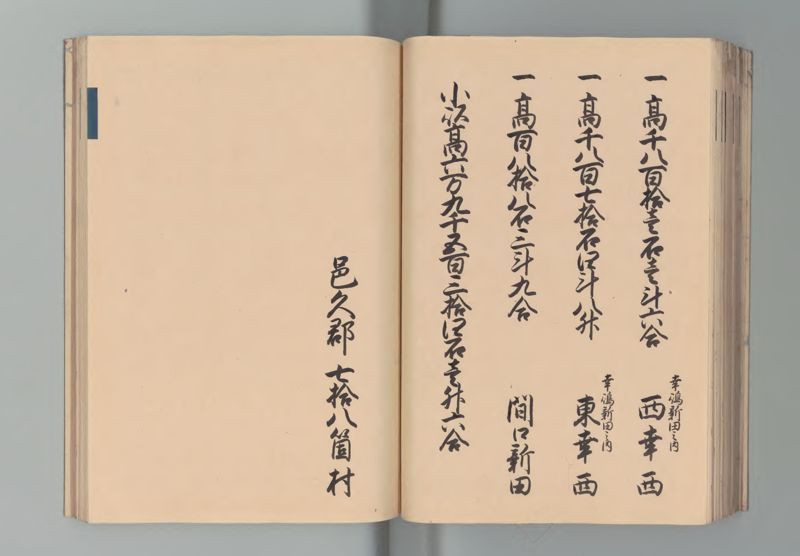 一高千八百拾壱石壱斗六合
幸嶋新田之内
西幸西
一高千八百七拾石四斗八升
幸嶋新田之内
東幸西
一高百八拾八石三斗九合
間口新田
小以高六万九千五百三拾四石壱升六合
邑久郡七拾八箇村